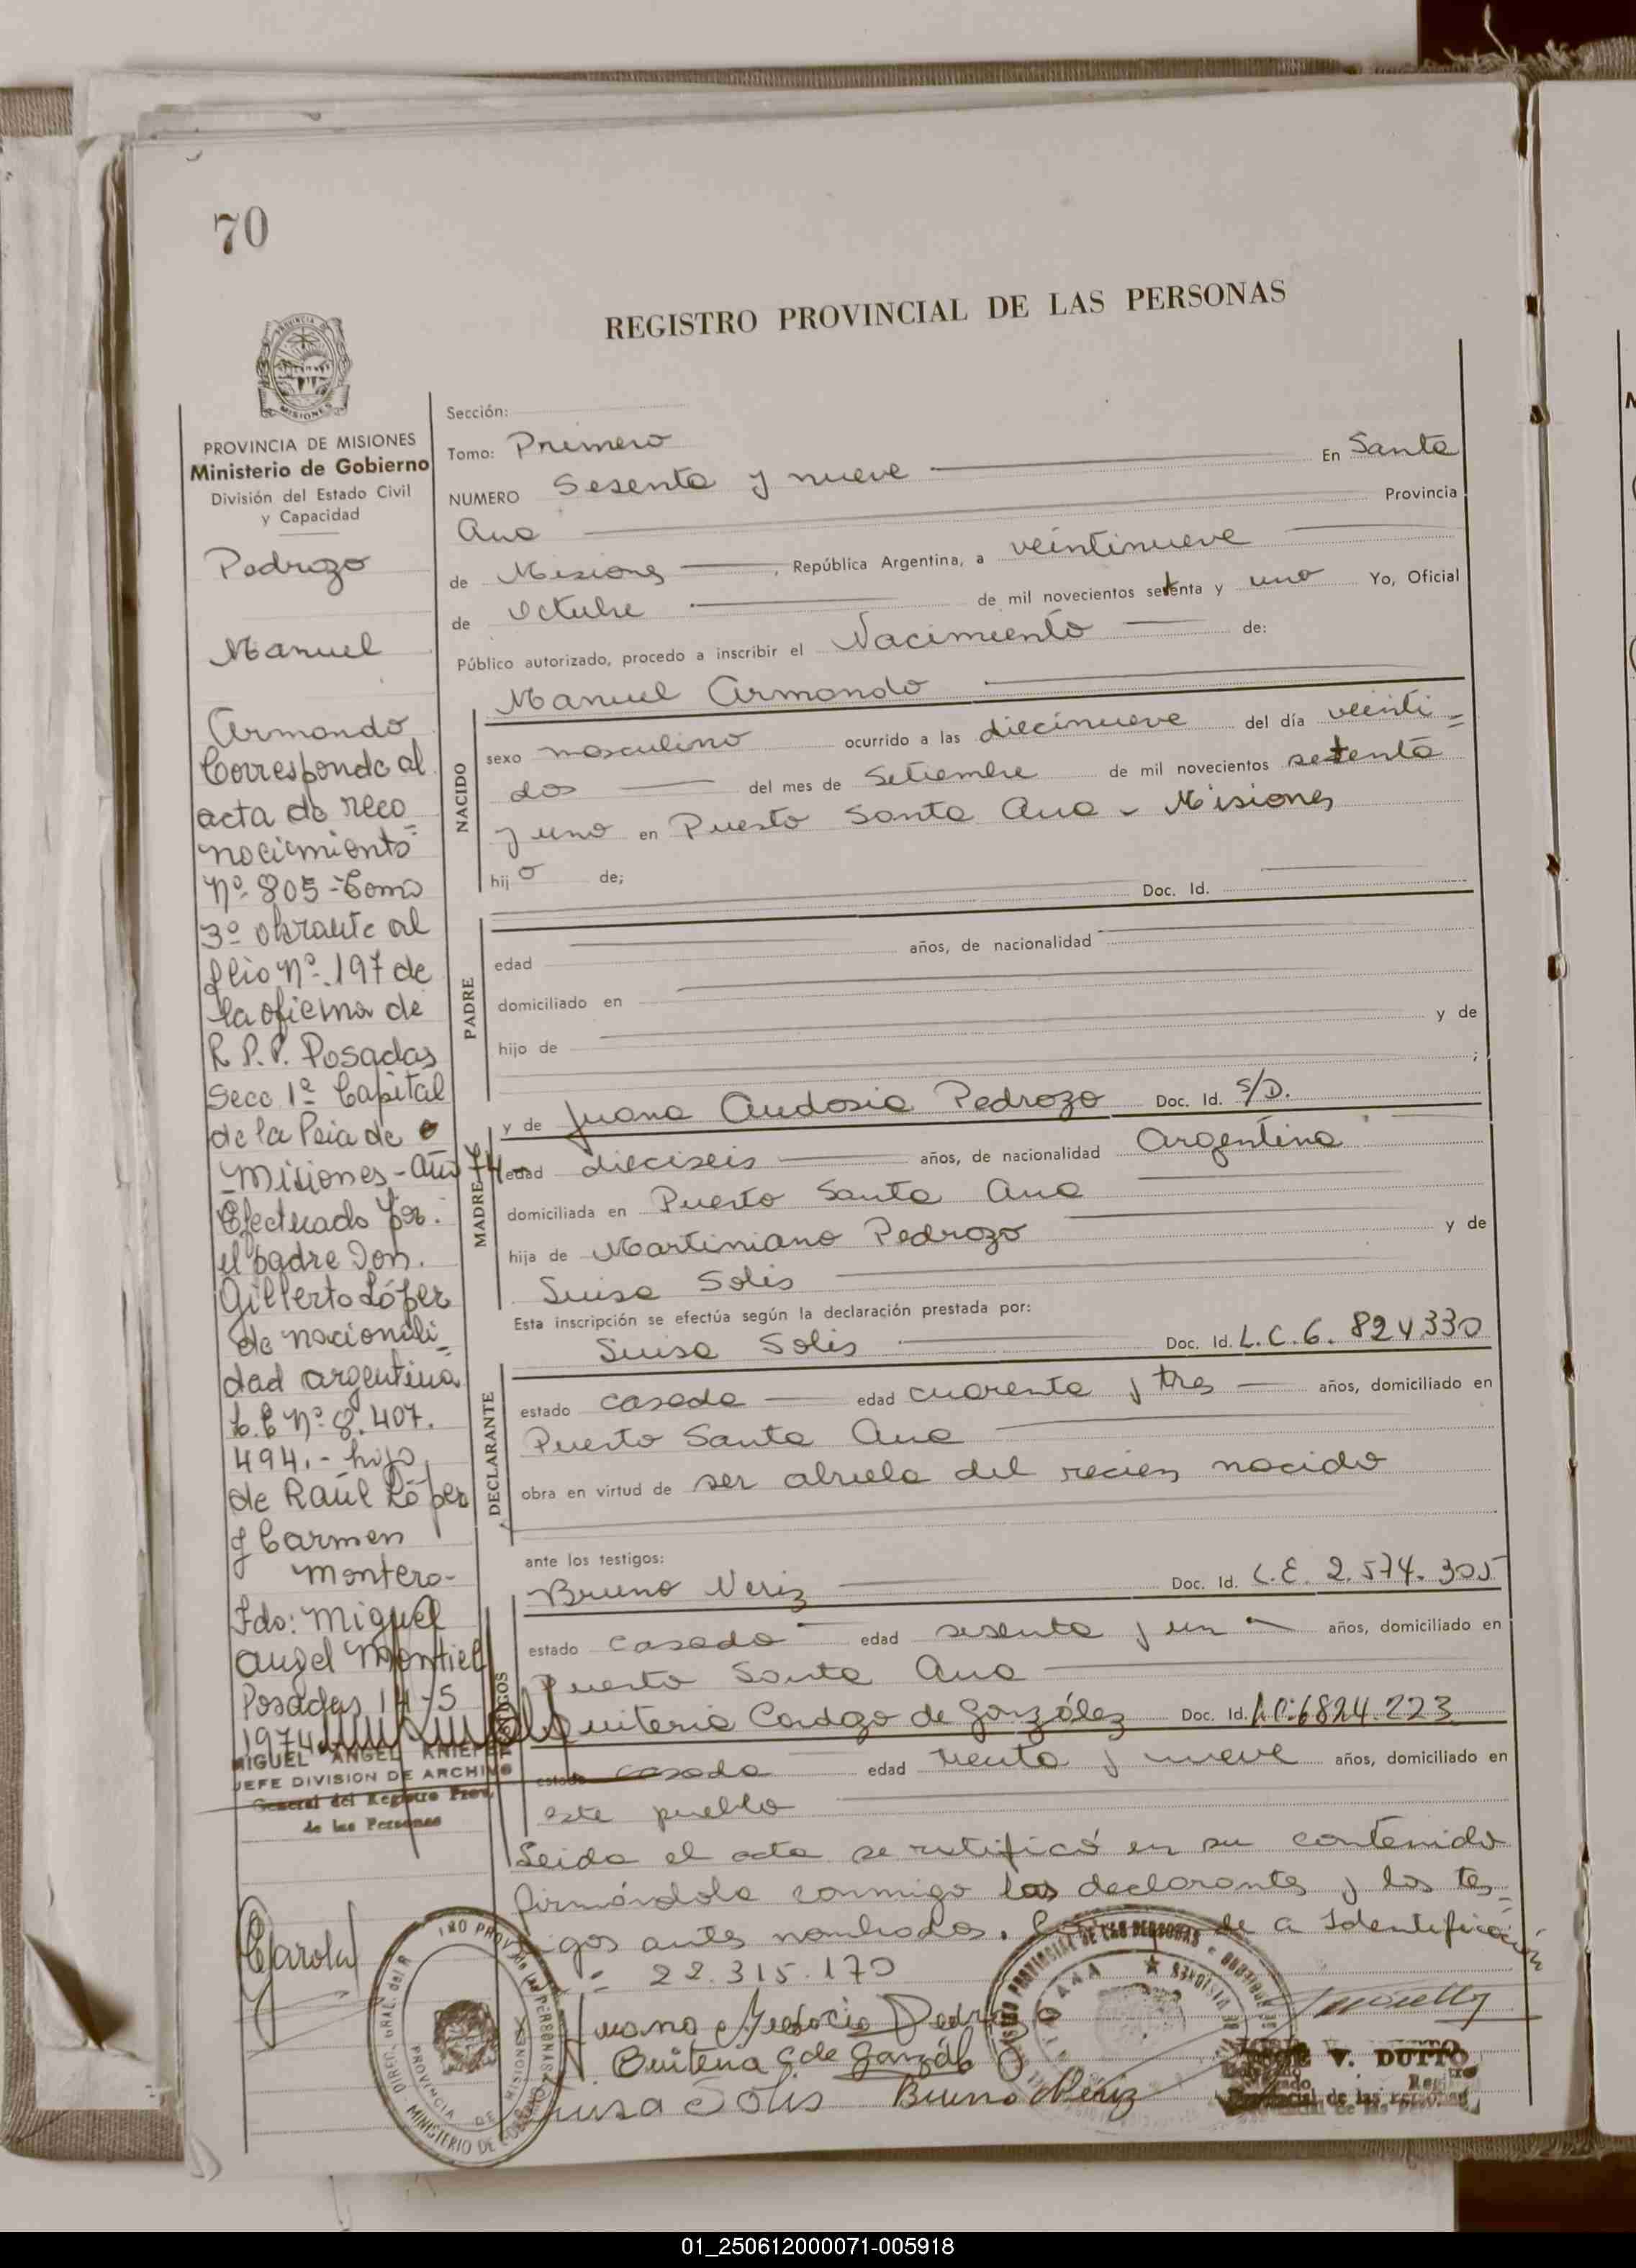 70
REGISTRO PROVINCIAL DE LAS PERSONAS
PROVINCIA DE MISIONES
Ministerio de Gobierno
División del Estado Civil
y Capacidad
Pedrozo
Manuel
Armando
Corresponde al
acta de reco=
nocimiento
Nº 805 - Tomo
3º obrante al
flio Nº 197 de
la oficina de
R P.P. Posadas
Secc 1ª Capital
de la Pcia de
Misiones - año 74 -
Efectuado por
el padre Don.
Gilberto López
de nacionali=
dad argentina
Nº 8.407.
494.- hijo
de Raúl López
y Carmen
Montero-
Fdo: Miguel
Angel Montiel
Posadas 14-5
1974
MIGUEL ANGEL KNIEPE
JEFE DIVISION DE ARCHIVO
General del Registro Prov.
de las Personas
Sección:
Tomo: Primero
NUMERO Sesenta y nueve En Santa
Ana Provincia
de Misiones, República Argentina, a veintinueve
de octubre de mil novecientos setenta y uno Yo, Oficial
Público autorizado, procedo a inscribir el Nacimiento de:
Manuel Armando
NACIDO
sexo masculino ocurrido a las diecinueve del día veinti=
dos del mes de Setiembre de mil novecientos setenta
y uno en Puerto Santa Ana - Misiones
hij o de;
Doc. Id.
PADRE
edad años, de nacionalidad
domiciliado en
hijo de y de
;
MADRE
y de Juana Audosia Pedrozo Doc. Id. S/D.
edad dieciseis años, de nacionalidad Argentina
domiciliada en Puerto Santa Ana
hija de Martiniano Pedrozo y de
Luisa Solis
Esta inscripción se efectúa según la declaración prestada por:
DECLARANTE
Luisa Solis Doc. Id. L.C. 6. 824330
estado casada edad cuarenta y tres años, domiciliado en
Puerto Santa Ana
obra en virtud de ser abuela del recien nacido
ante los testigos:
TESTIGOS
Bruno Neriz Doc. Id. L.E. 2.574.305
estado casado edad sesenta y un años, domiciliado en
Puerto Santa Ana
Quiteria Cardozo de González Doc. Id. LC:6824.223
estado casada edad treinta y nueve años, domiciliado en
este pueblo
Leida el acta se ratificó en su contenido
firmándola conmigo los declarantes y los tes=
tigos antes nombrados. de a Identificación
22.315.170
Juana Audocia Pedrozo
Quiteria C de Gonzál
Luisa Solis Bruno Neriz
V. DUTTO
01_250612000071-005918